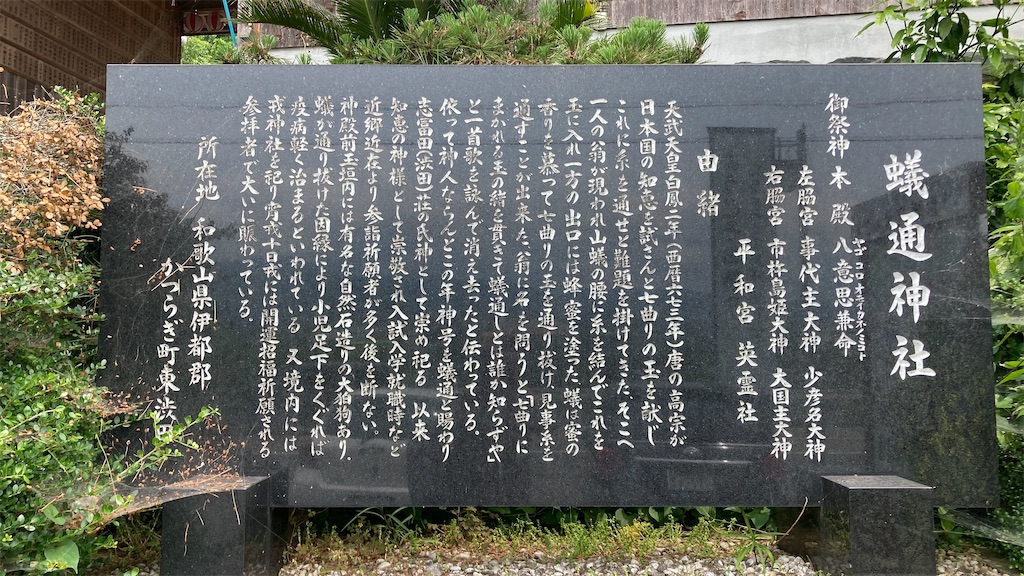 蟻通神社
御祭神 本殿 八意思兼命
ヤゴコロオモイカネノミコト
左脇宮 事代主大神 少彦名大神
右脇宮 市杵島姫大神 大国主大神
平和宮 英霊社
由緒
天武天皇白鳳二年(西暦六七三年)唐の高宗が
日本国の知恵を試さんと七曲りの玉を献じ
これに糸を通せと難題を掛けてきた、そこへ
一人の翁が現われ山蟻の腰に糸を結んでこれを
玉に入れ一方の出口には蜂蜜を塗った、蟻は蜜の
香りを慕って七曲りの玉を通り抜け、見事糸を
通すことが出来た、翁に名を問うと七曲りに
まがれる玉の緒を貫きて蟻通しとは誰か知らずや
と一首歌を詠んで消え去ったと伝わっている。
依って神人ならんとこの年神号を蟻通と賜わり
志富田(渋田)荘の氏神として崇め祀る 以来
知恵の神様として崇敬され入試入学就職時など
近郷近在より参詣祈願者が多く後を断ない。
神殿前玉垣内には有名な自然石造りの大狛狗あり、
蟻が通り抜けた因縁により小児足下をくぐれば
疫病軽く治まるといわれている 又境内には
戎神社を祀り宵戎十日戎には開運招福祈願される
参拝者で大いに賑わっている。
所在地 和歌山県伊都郡
かつらぎ町東渋田